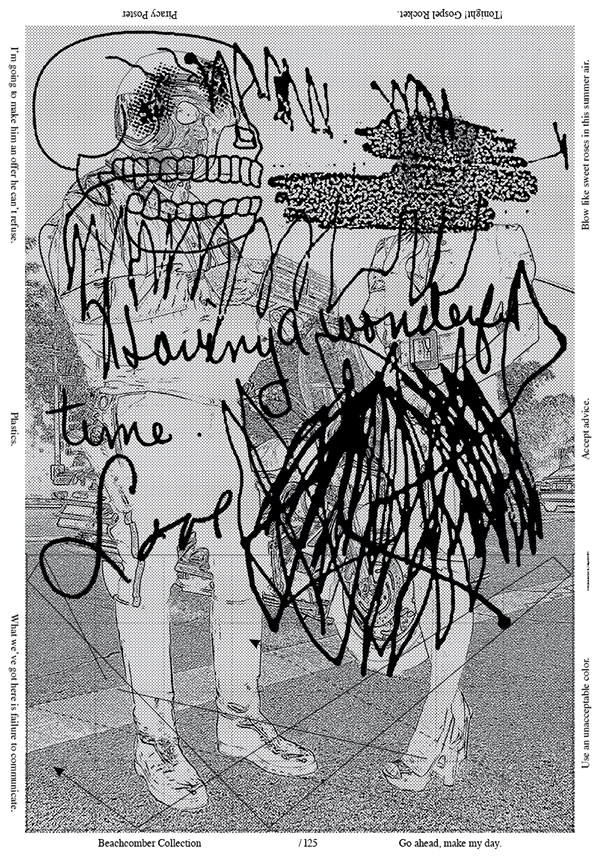 Piracy Poster
!Tonight! Gospel Rocket.
I'm going to make him an offer he can't refuse.
Plastics.
What we've got here is failure to communicate.
Blow like sweet roses in this summer air.
Accept advice.
Use an unacceptable color.
Having a wonderful
time.
Love
Beachcomber Collection
/ 125
Go ahead, make my day.